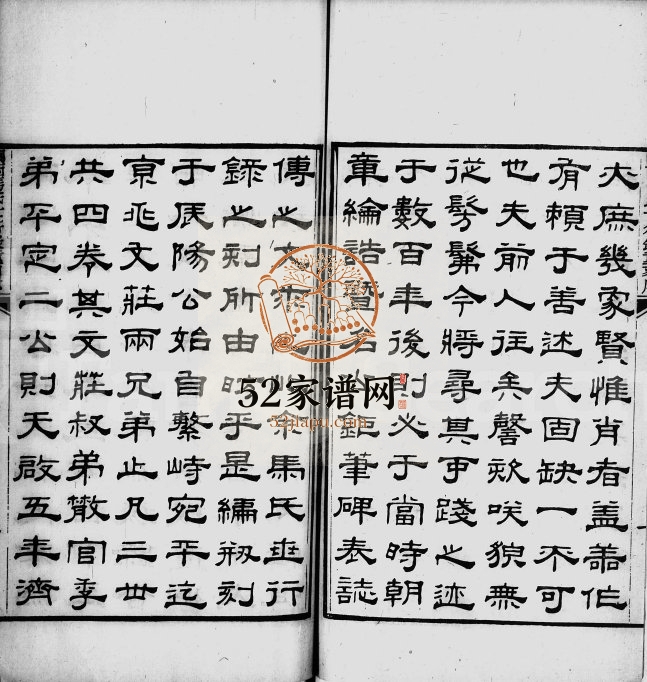 夫庶幾象賢惟肖者蓋善作
有賴于善述夫固缺一不可
也夫前人往矣謦欬咲貌無
從髣髴今將尋其可踐之迹
于數百年後則必于當時朝
章綸誥暨名公鉅筆碑表誌
傳之求此余馬氏世行
錄之刻所由昉乎是編初刻
于辰陽公始自繁峙宛平迄
京兆文莊兩兄弟止凡三世
共四卷其文莊叔弟散官季
弟平定二公則天啟五年濟
52家谱网
52jiapu.com